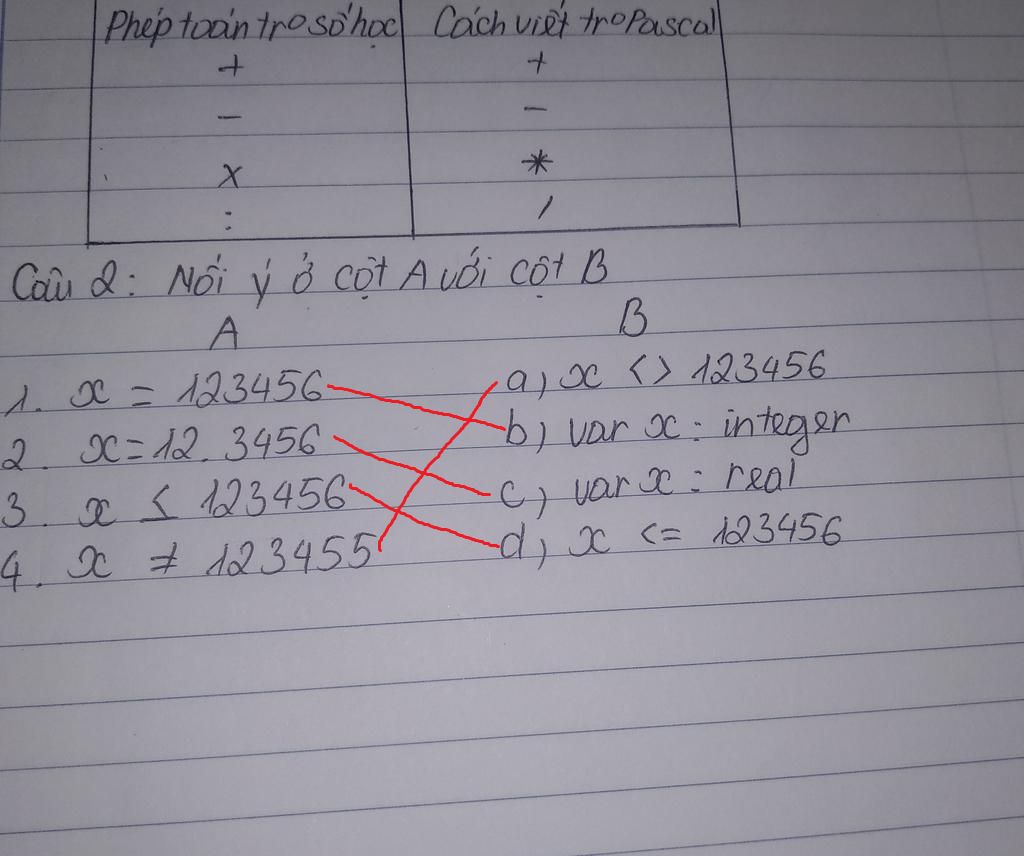 Phép toán tro số học Cách viết tro Pascal
+ +
− −
x *
: /
Câu 2: Nối ý ở cột A với cột B
A B
1. x = 123456 a, x <> 123456
2. x = 12.3456 b, var x : integer
3. x ≤ 123456 c, var x : real
4. x ≠ 123455 d, x <= 123456